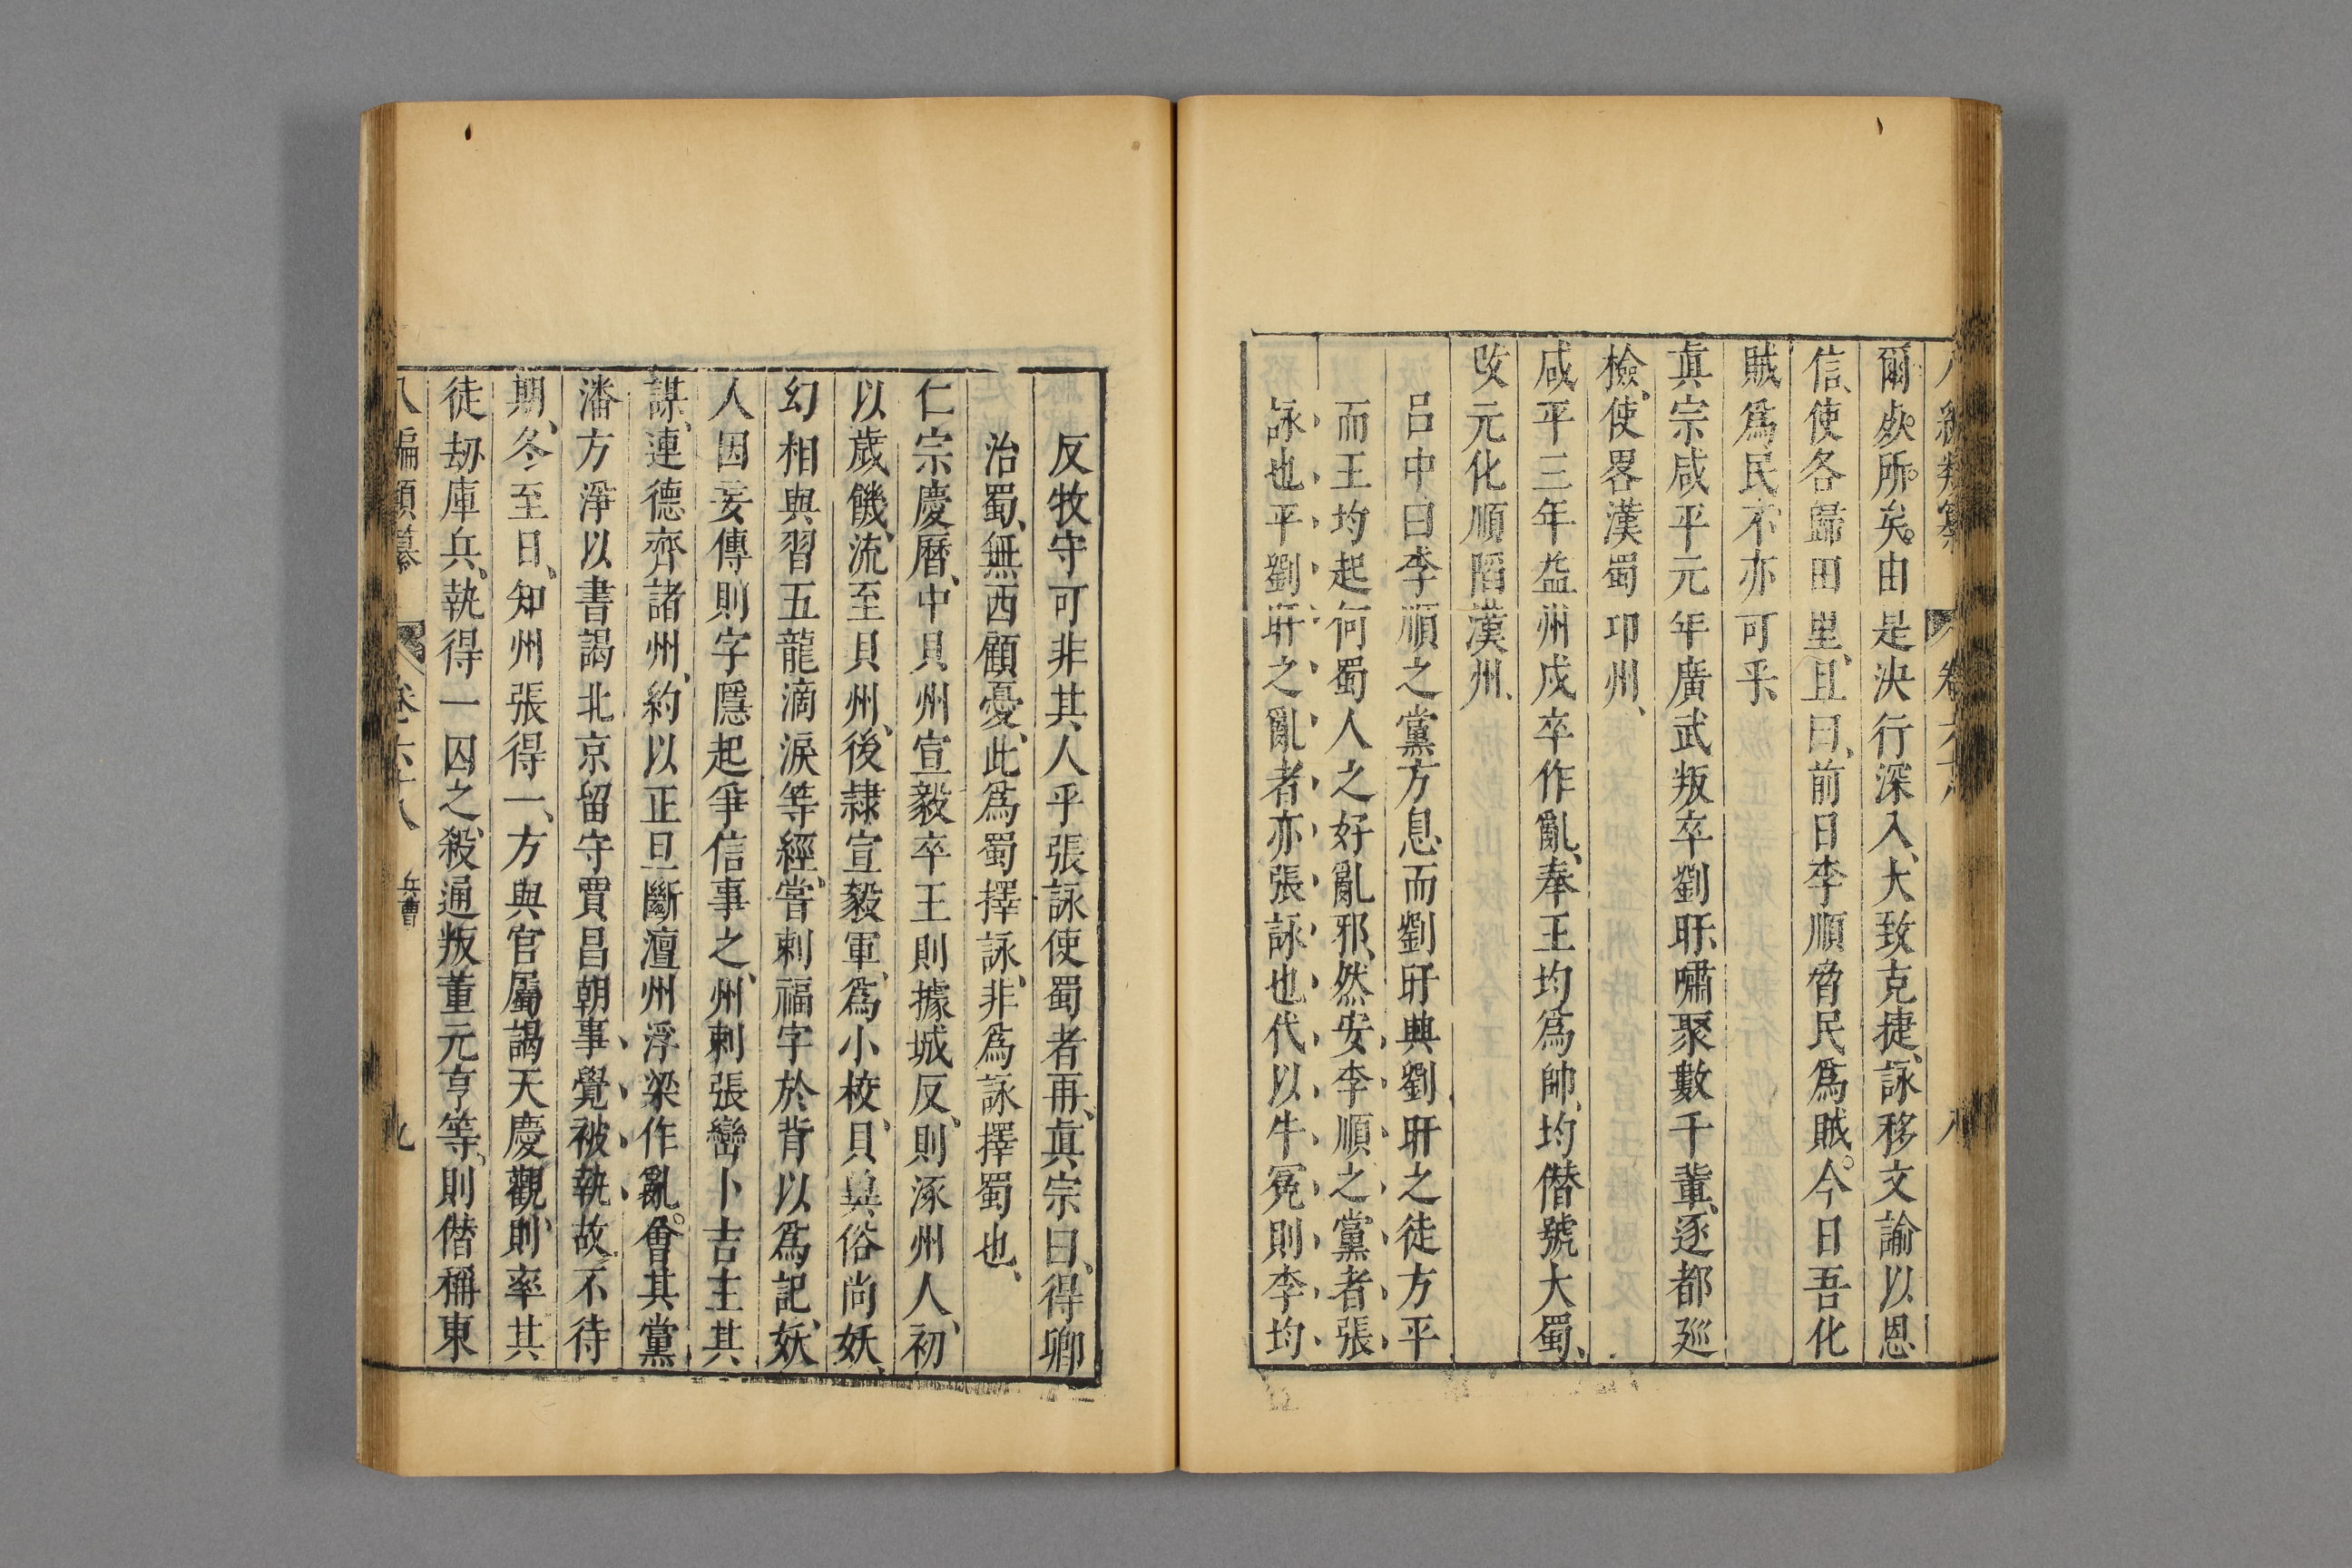 爾䖏所矣由是決行深入大致克捷詠移文諭以恩
信使各歸田里且曰前日李順脅民爲賊今日吾化
賊爲民不亦可乎
眞宗咸平元年廣武叛卒劉旰嘯聚數千輩逐都廵
檢使畧漢蜀卭州
咸平三年益州戍卒作亂奉王均爲帥均僣號大蜀
攺元化順䧟漢州
呂中曰李順之黨方息而劉旰興劉旰之徒方平
而王均起何蜀人之好亂邪然安李順之黨者張
詠也平劉旰之亂者亦張詠也代以牛冕則李均
反牧守可非其人乎張詠使蜀者再眞宗曰得卿
治蜀無西顧憂此爲蜀擇詠非爲詠擇蜀也
仁宗慶曆中貝州宣毅卒王則據城反則涿州人初
以歲饑流至貝州後隷宣毅軍爲小校貝冀俗尚妖
幻相與習五龍滴淚等經嘗刺福字於背以爲記妖
人因妄傳則字隱起爭信事之州剌張巒卜吉主其
謀連德齊諸州約以正旦斷澶州浮梁作亂會其黨
潘方淨以書謁北京留守賈昌朝事覺被執故不待
期冬至日知州張得一方與官屬謁天慶觀則率其
徒刼庫兵執得一囚之殺通叛董元亨等則僣稱東
八編類纂 卷六十八 兵曹 九